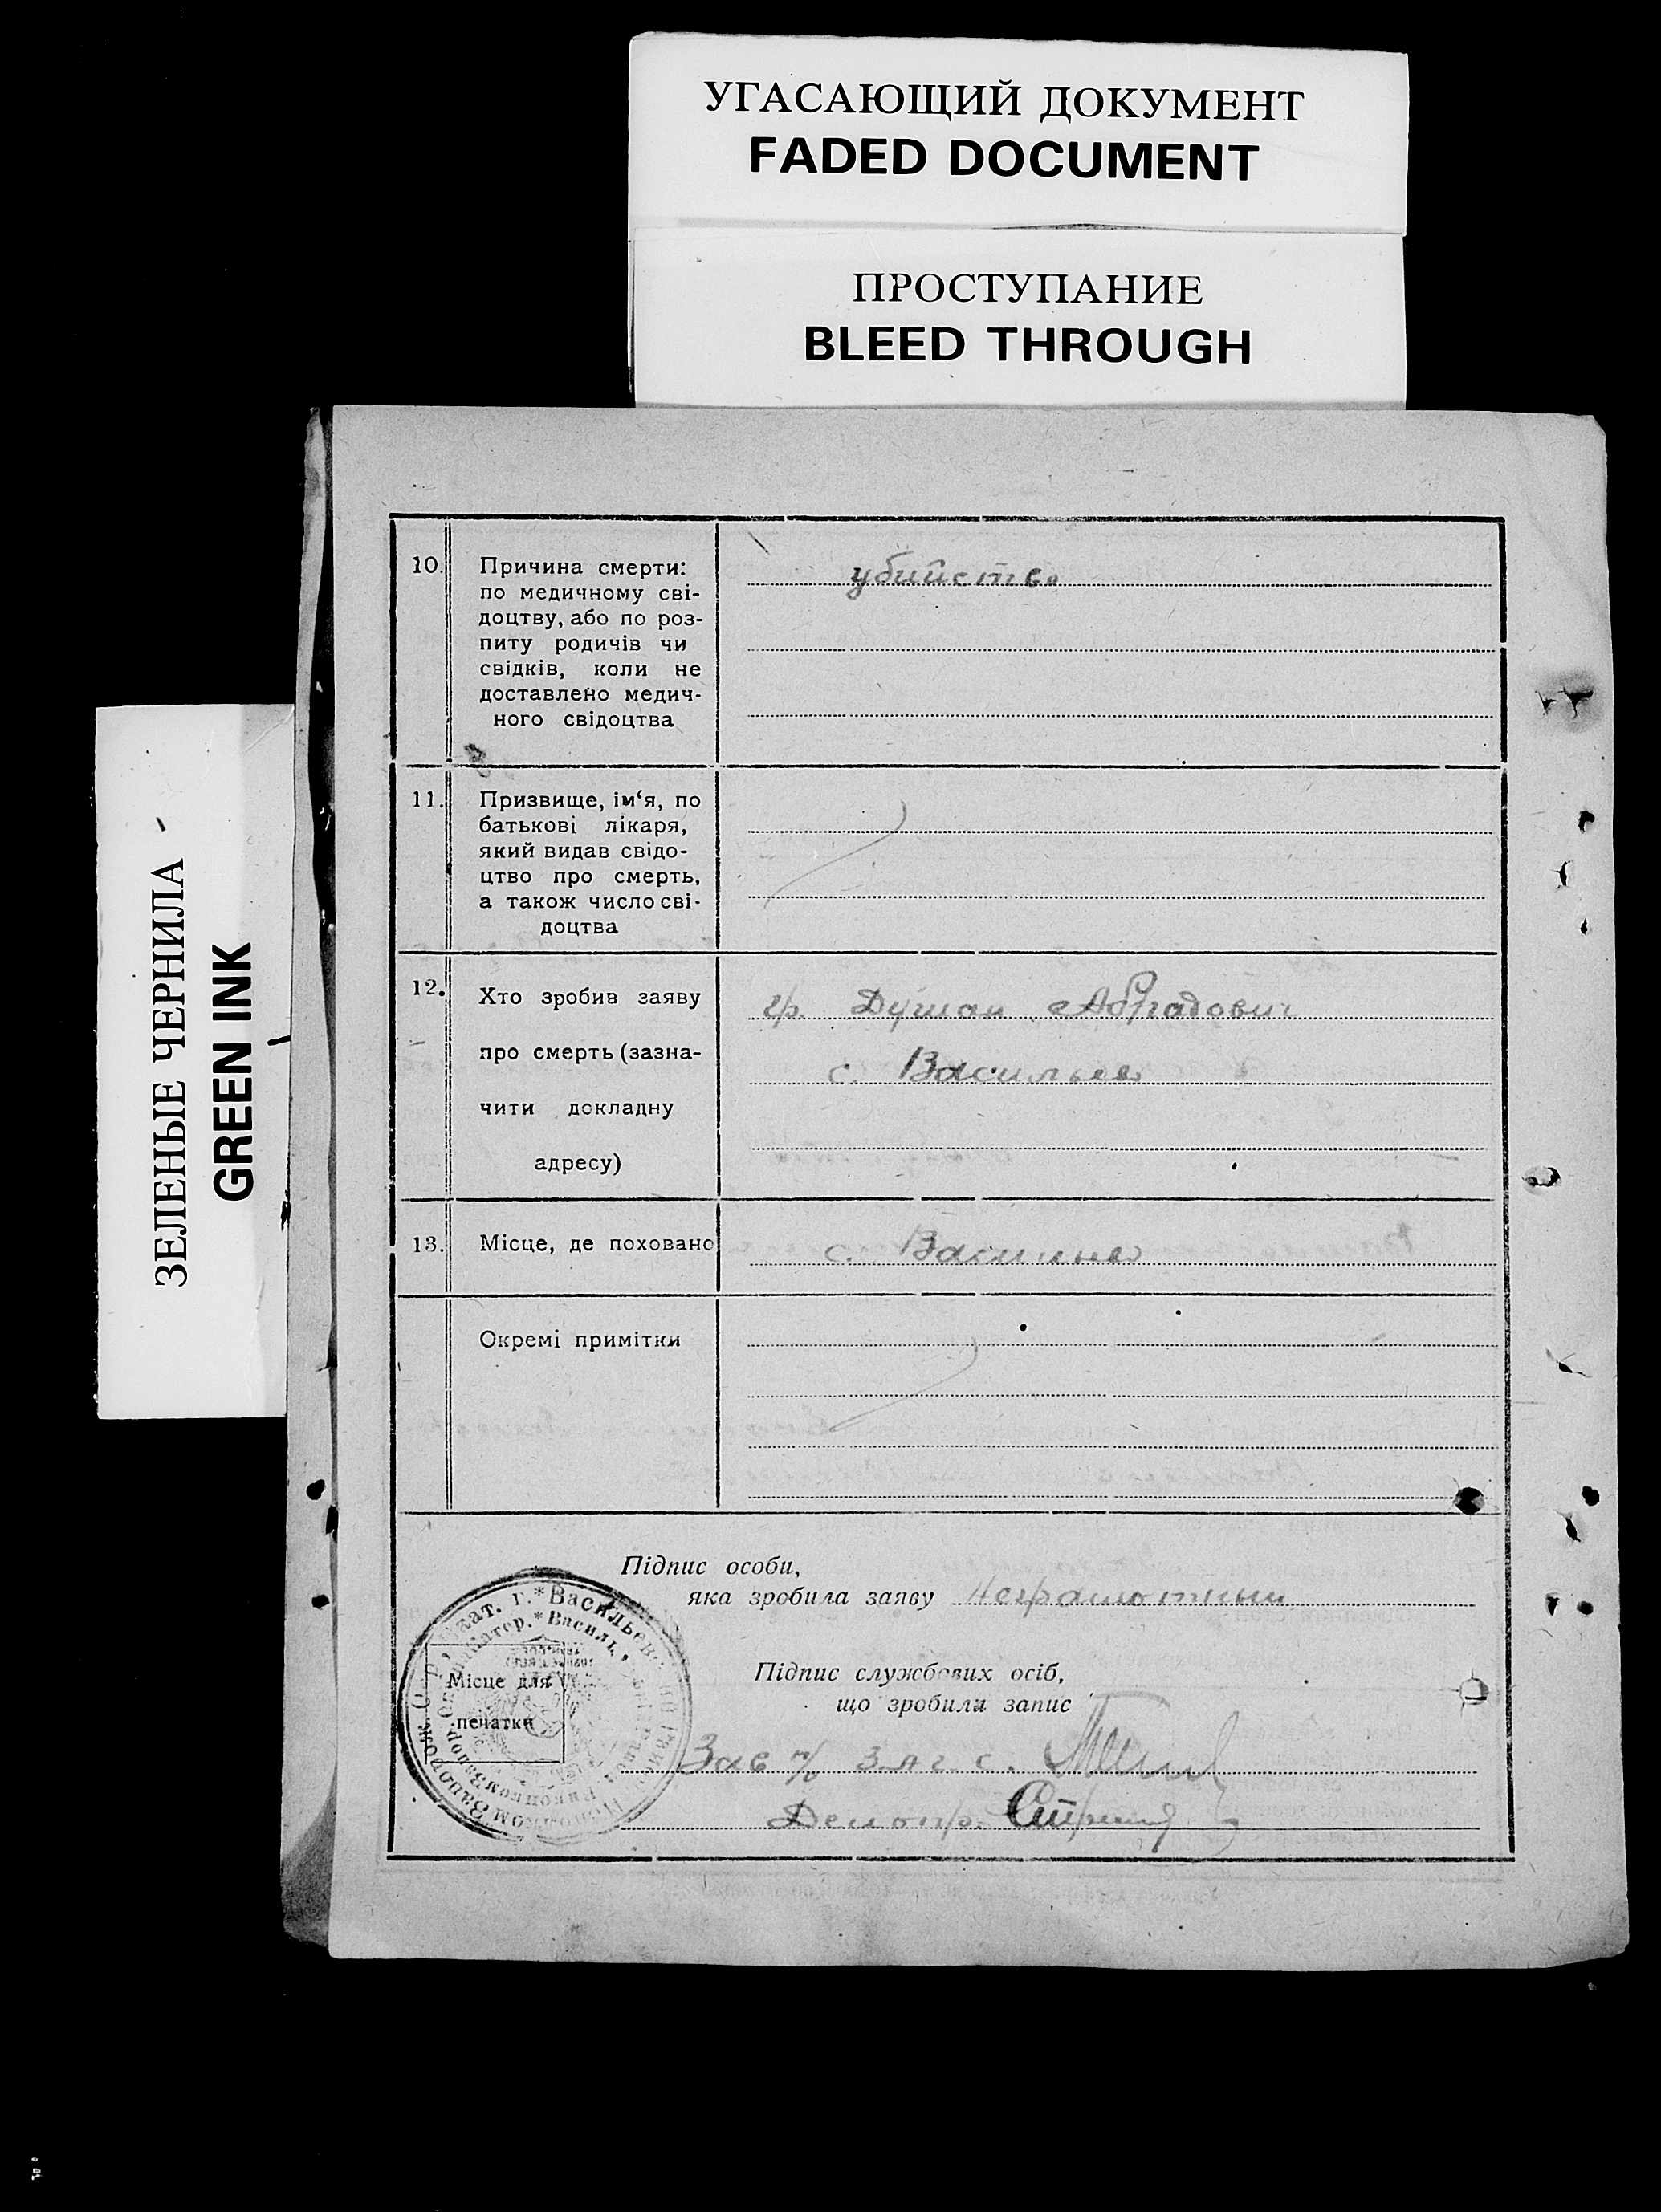 УГАСАЮЩИЙ ДОКУМЕНТ
FADED DOCUMENT
ПРОСТУПАНИЕ
BLEED THROUGH
ЗЕЛЕНЫЕ ЧЕРНИЛА
GREEN INK
10.
Причина смерти:
по медичному сві-
доцтву, або по роз-
питу родичів чи
свідків, коли не
доставлено медич-
ного свідоцтва
убийство
11.
Призвище, ім‘я, по
батькові лікаря,
який видав свідо-
цтво про смерть,
а також число сві-
доцтва
12.
Хто зробив заяву
про смерть (зазна-
чити докладну
адресу)
гр. Душан
с. Васильев
13.
Місце, де поховано
с.
Окремі примітки
Підпис особи,
яка зробила заяву неграмотный
Підпис службових осіб,
що зробили запис
Місце для
печатки
Зав п/о з.а.г.с.
Делопр.